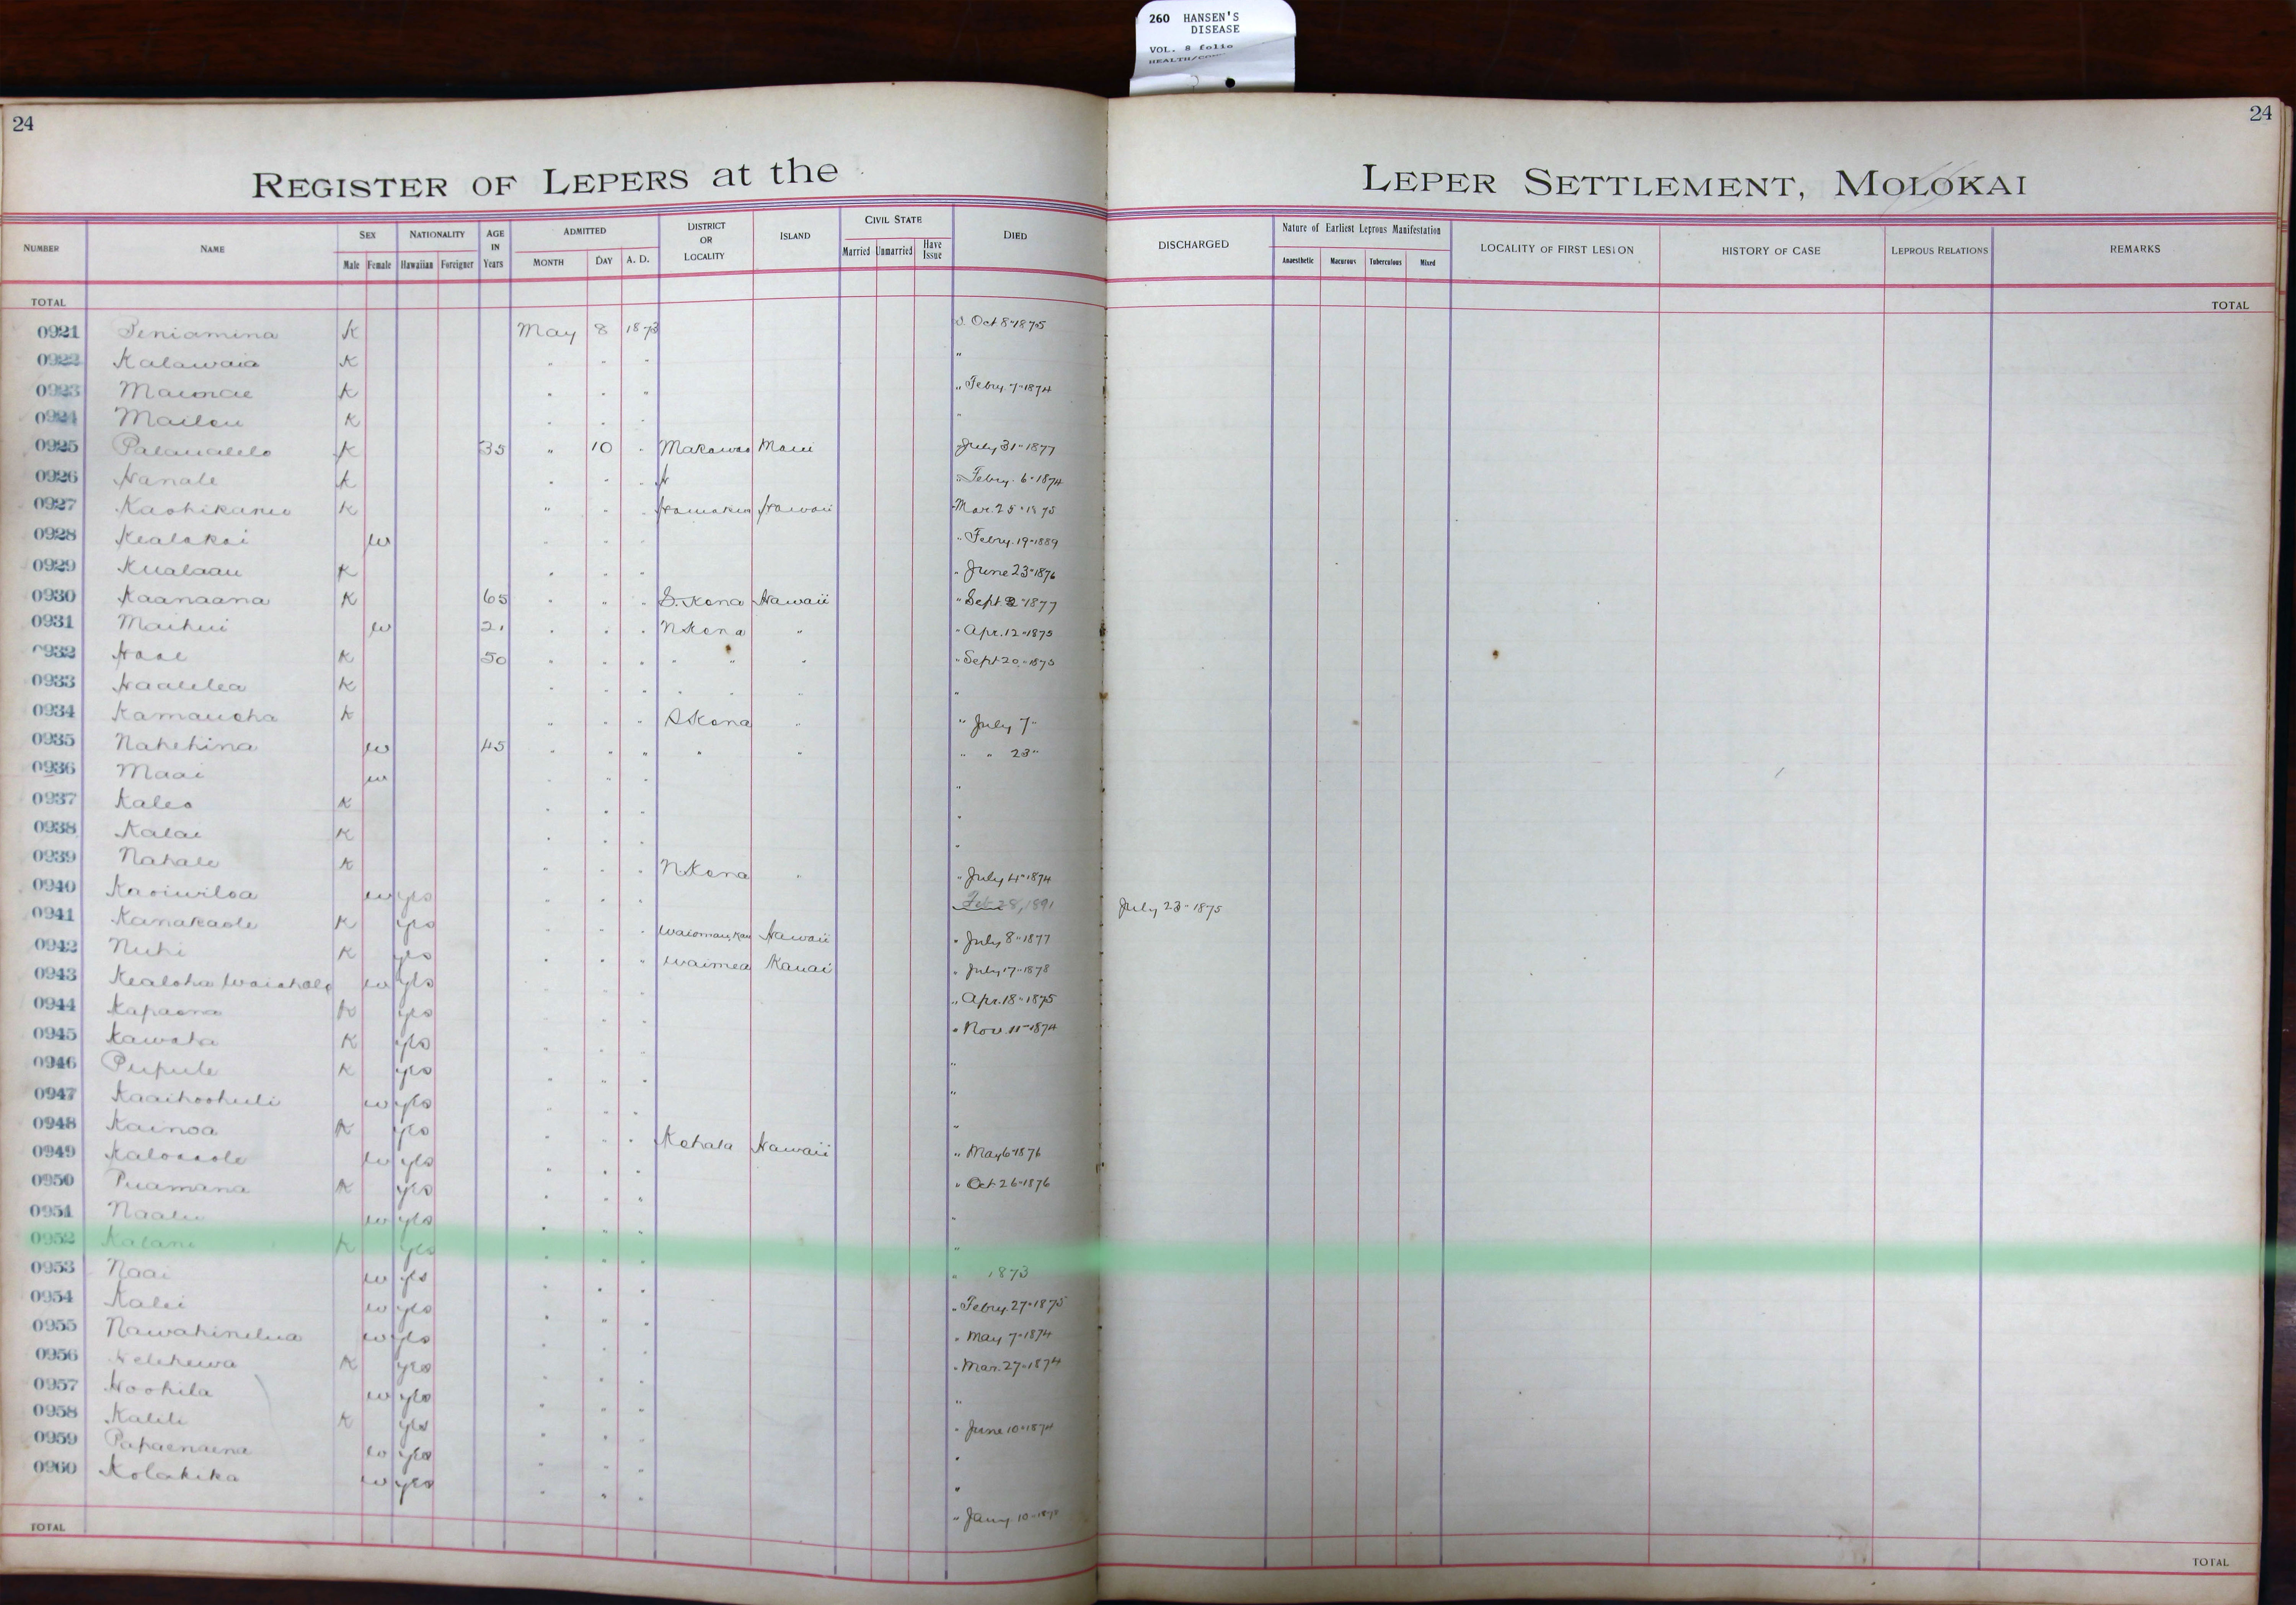 260 HANSEN'S
DISEASE
VOL. 8 folio
24
24
REGISTER OF LEPERS at the LEPER SETTLEMENT, MOLOKAI
NUMBER NAME SEX Male Female NATIONALITY Hawaiian Foreigner AGE IN Years ADMITTED MONTH DAY A. D. DISTRICT OR LOCALITY ISLAND CIVIL STATE Married Unmarried Have Issue DIED DISCHARGED Nature of Earliest Leprous Manifestation Anaesthetic Macurous Tuberculous Mixed LOCALITY OF FIRST LESION HISTORY OF CASE LEPROUS RELATIONS REMARKS
TOTAL TOTAL
0921 Peniamina K May 8 1873 Oct 8" 1875
0922 Kalawaia K " " " "
0923 K " " " " Febry. 7" 1874
0924 K " " " "
0925 K 35 " 10 " Makawao Maui July 31" 1877
0926 Hanale K " " " " Febry. 6" 1874
0927 K " " " Hamakua Hawaii Mar. 25" 1875
0928 Kealakai w " " " " Febry. 19" 1889
0929 Kualaau K " " " " June 23" 1876
0930 Kaanaana K 65 " " " S. Kona Hawaii " Sept 2" 1877
0931 Maihui w 21 " " " N Kona " " Apr. 12" 1875
0932 K 50 " " " " " " " Sept 20" 1873
0933 Haalilea K " " " " " " "
0934 Kamauoha K " " " S Kona " " July 7"
0935 Nahehina w 45 " " " " " " " 23"
0936 Maai w " " " "
0937 Kaleo K " " " "
0938 Kalai K " " " "
0939 Nahale K " " " N Kona " " July 4" 1874
0940 Kaoiwiloa w yes " " " Feb 28, 1891 July 23" 1875
0941 Kanakaole K yes " " " Hawaii " July 8" 1877
0942 Nuhi K yes " " " Waimea Kauai " July 17" 1878
0943 Kealoha w yes " " " " Apr. 18" 1875
0944 Kapaona K yes " " " Nov. 11" 1874
0945 Kawaha K yes " " " "
0946 Pupule K yes " " " "
0947 Kaaihoohuli w yes " " " "
0948 Kainoa K yes " " " Kohala Hawaii " May 6" 1876
0949 w yes " " " " Oct 26" 1876
0950 Puamana K yes " " " "
0951 Naalu w yes " " " "
0952 Kalani K yes " " " " 1873
0953 Naai w yes " " " " Febry. 27" 1875
0954 Kalei w yes " " " " May 7" 1874
0955 w yes " " " " Mar. 27" 1874
0956 K yes " " " "
0957 Hoohila w yes " " " " June 10" 1874
0958 Kalili K yes " " " "
0959 Papaenaena w yes " " " "
0960 Kolakika w yes " " " " Jany. 10"
TOTAL TOTAL